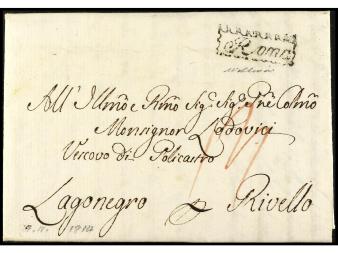 Roma
All' Illmo e Rmo Sigr Sigr Pne Colmo
Monsignor Lodovici
Vescovo di Policastro
Lagonegro p Rivello